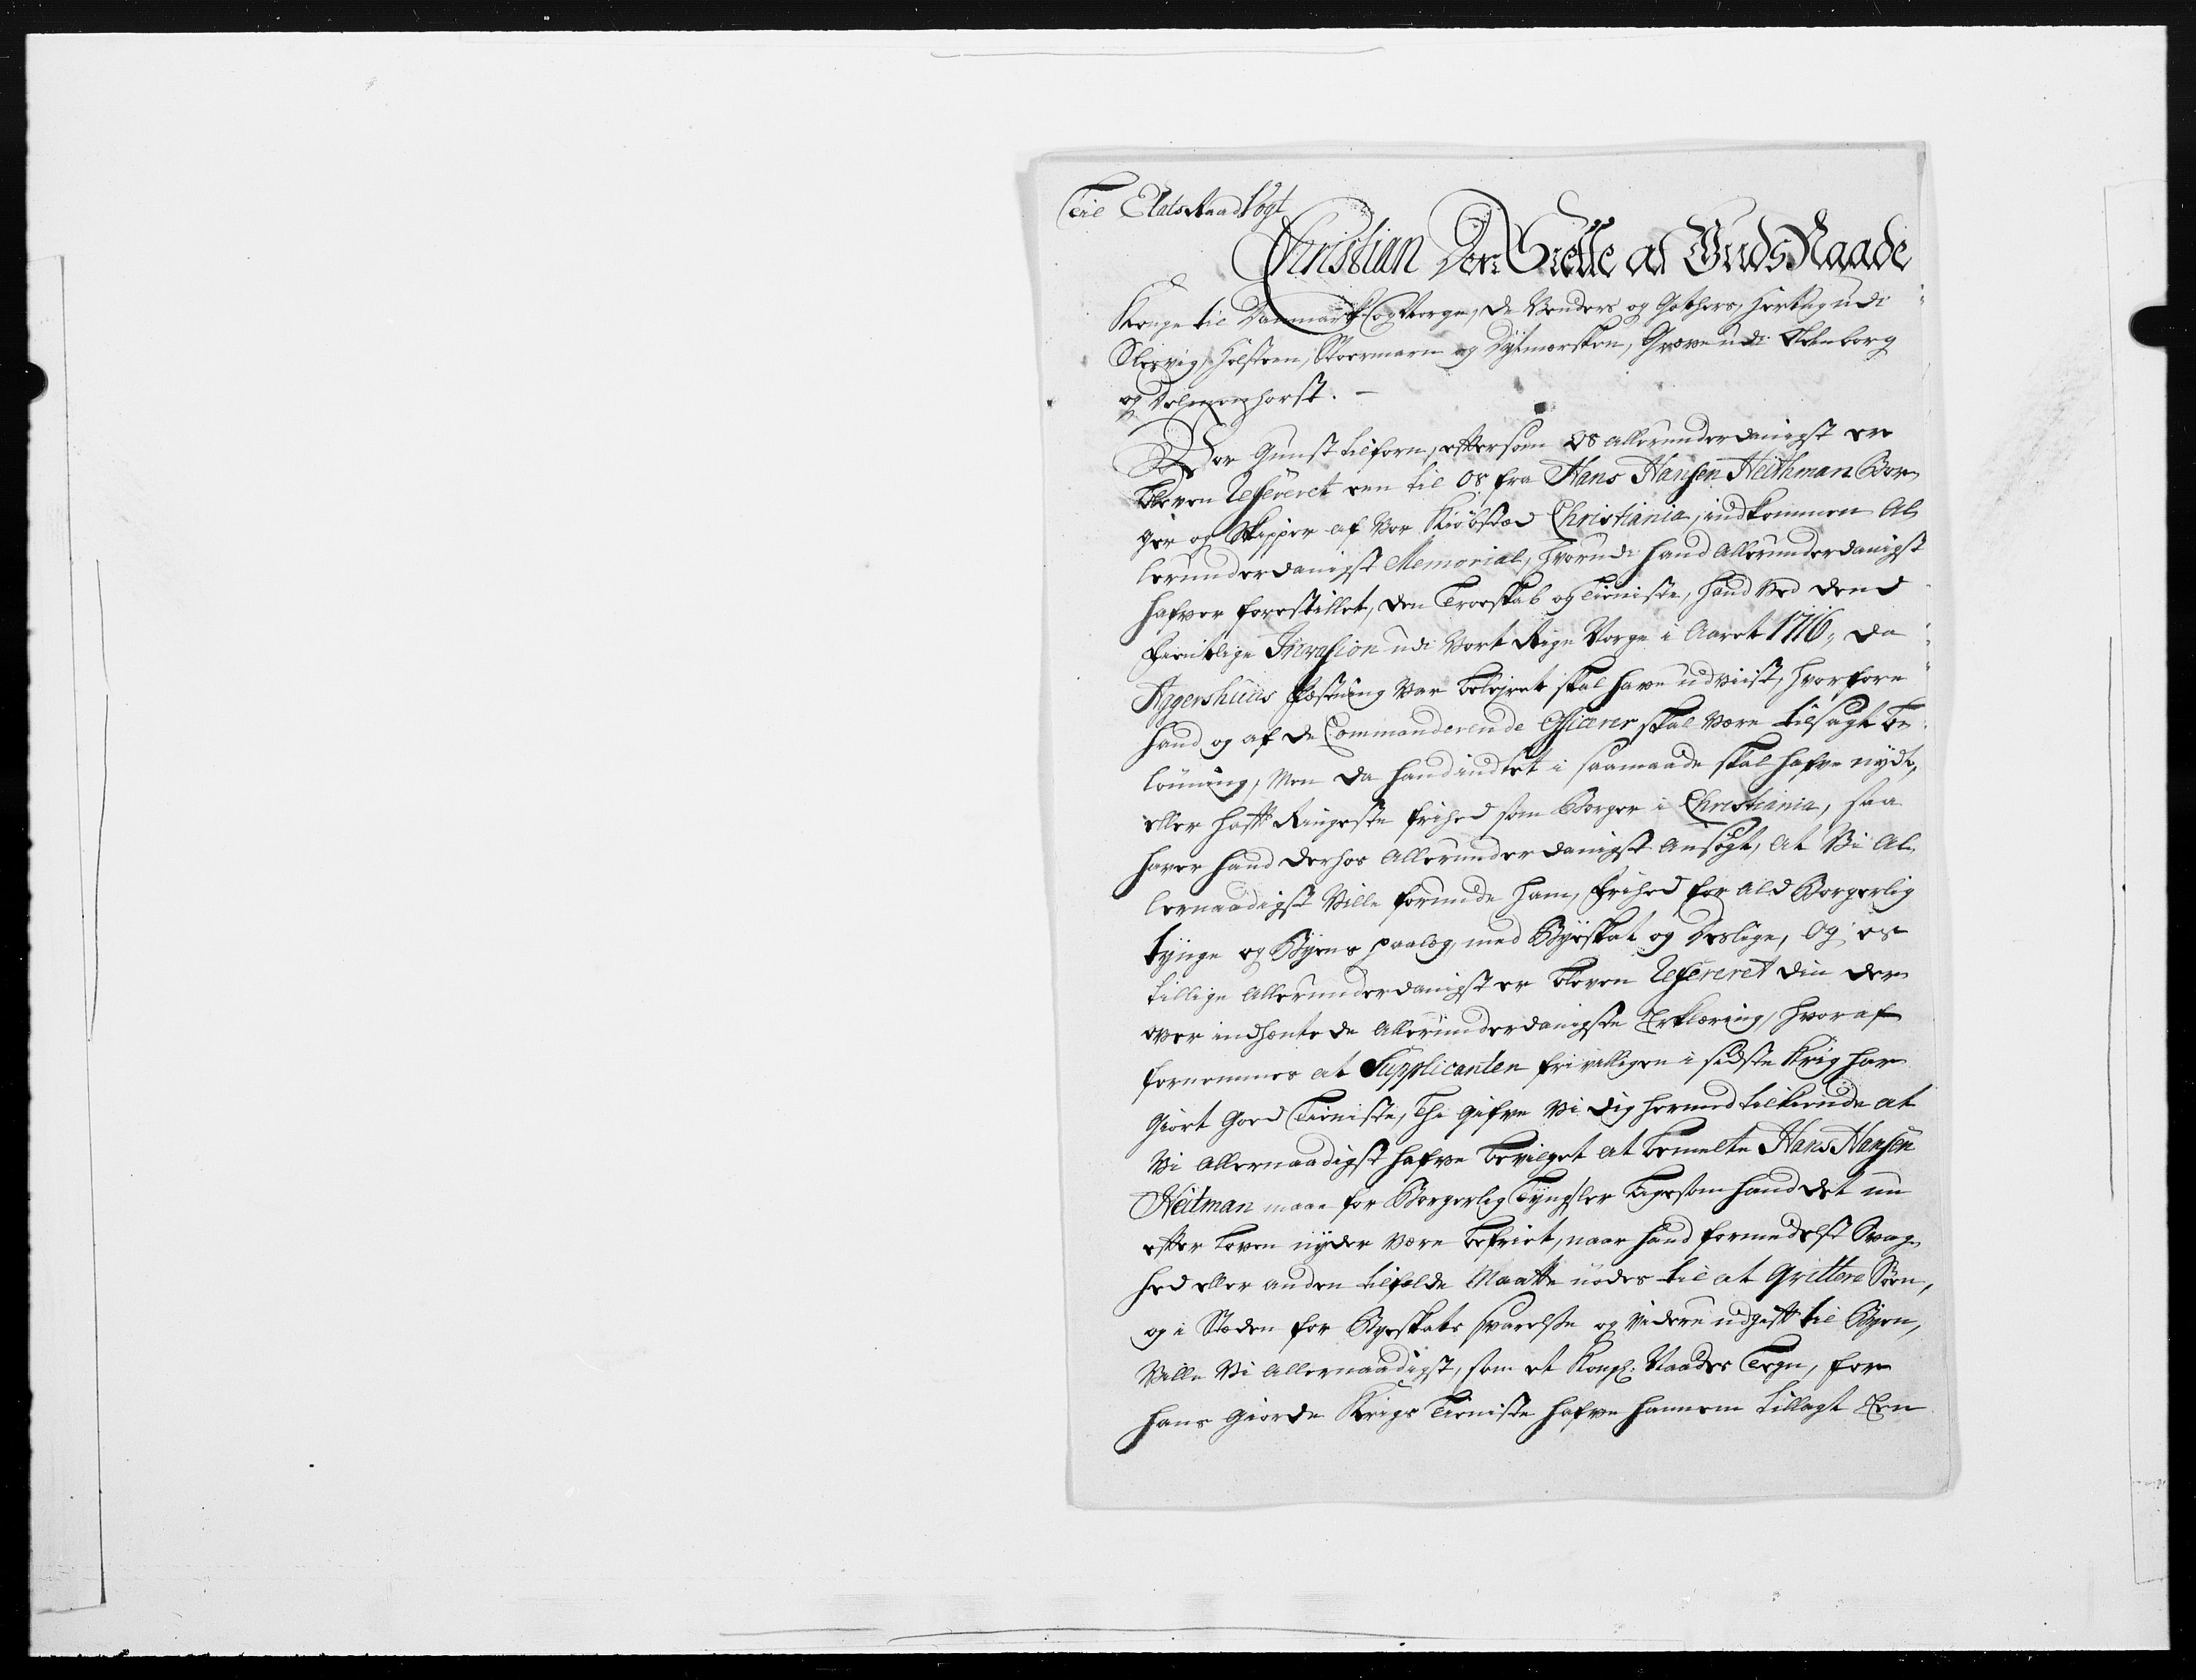 Til Etats Raad Vogt
Christian Den Siette af Guds Naade
Konge til Danmark og Norge, de Venders og Gothers, Hertug udi
Slesvig, Holsteen, Stormarn og Dytmersken, Greve udi Oldenborg
og Delmenhorst. –
Vor Gunst tilforn, eftersom Os allerunderdanigst er
bleven Refereret een til Os fra Hans Hansen Heithman Bor-
ger og Skipper af Vor Kiøbstad Christiania, indkommen Al-
lerunderdanigst Memorial, hvorudi hand Allerunderdanigst
hafver forestillet, den Troeskab og Tieniste, hand ved dend
Fientlige Invasion udi Vort Rige Norge i Aaret 1716, da
Aggershuus Fæstning var beleiret skal have udviist, hvorfore
hand og af de Commanderende Officerer skal være tilsagt be-
lønning, Men da hand indtet i saamaade skal hafve nydt,
eller hafft Ringeste frihed som Borger i Christiania, saa
haver hand derhos Allerunderdanigst ansøgt, at Vi Al-
lernaadigst Ville forunde ham, frihed for ald Borgerlig
tynge og Byens paalæg, med Byeskat og deslige, Og os
tillige Allerunderdanigst er bleven Refereret din der-
over indhentede Allerunderdanigste Erklæring, hvoraf
fornemmes at Supplicanten frivilligen i sidste Krig har
giort goed Tieniste, Thi gifve Vi dig hermed tilkiende at
Vi Allernaadigst hafve bevilget at bemelte Hans Hansen
Heitman maae for Borgerlig Tyngsler ligesom hand det nu
efter Loven nyder være befriet, naar hand formedelst Svag-
hed eller anden tilfælde Maatte nødes til at Qvittere Søen,
og i Steden for Byeskats svarelse og Videre udgifft til Byen,
Ville Vi Allernaadigst, som et Kongl: Naades Tegn, for
hans giorde Krigs Tieniste hafve hannem tillagt Een